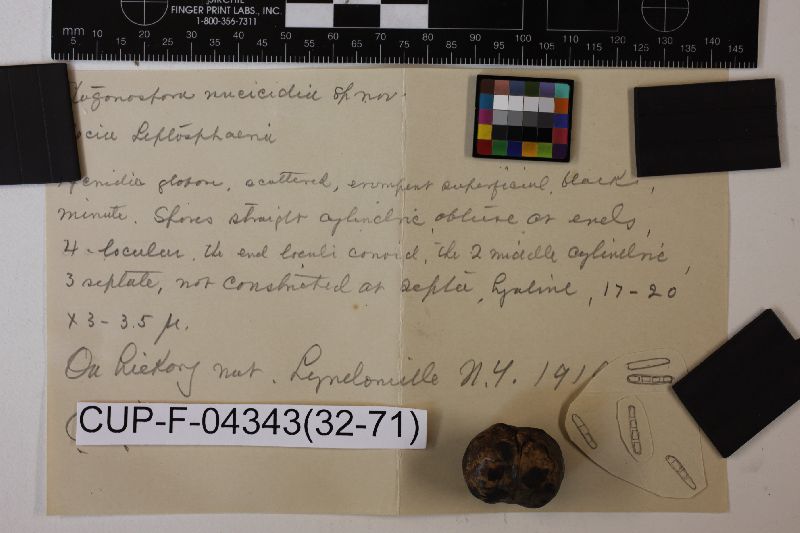 FINGER PRINT LABS., INC.
1-800-356-7311
mm 5 10 15 20 25 30 35 40 45 50 55 60 65 70 75 80 85 90 95 100 105 110 115 120 125 130 135 140 145
nucicidia sp nov.
Leptosphaeria
globose, scattered, erumpent superficial, black,
minute. Spores straight cylindric, obtuse at ends,
4-locular, the end loculi conoid, the 2 middle cylindric,
3 septate, not constricted at septa, hyaline, 17-20
x 3-3.5 µ.
On hickory nut. Lyndonville N.Y.
CUP-F-04343(32-71)